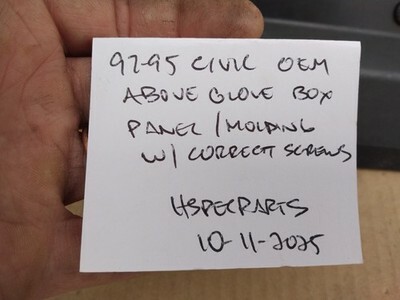 92-95 CIVIC OEM
ABOVE GLOVE BOX
PANEL / MOLDING
W/ CORRECT SCREWS
HSPECPARTS
10-11-2025